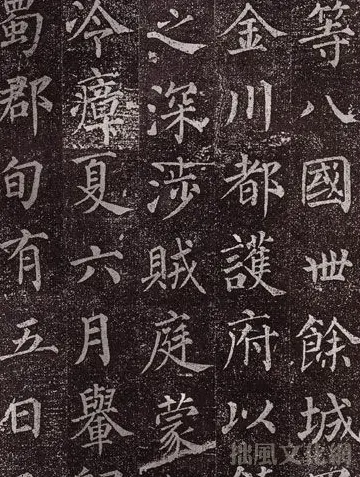 等八國丗餘城
金川都護府以
之深涉賊庭蒙
冷瘴夏六月轝
蜀郡旬有五日
拙風文化網